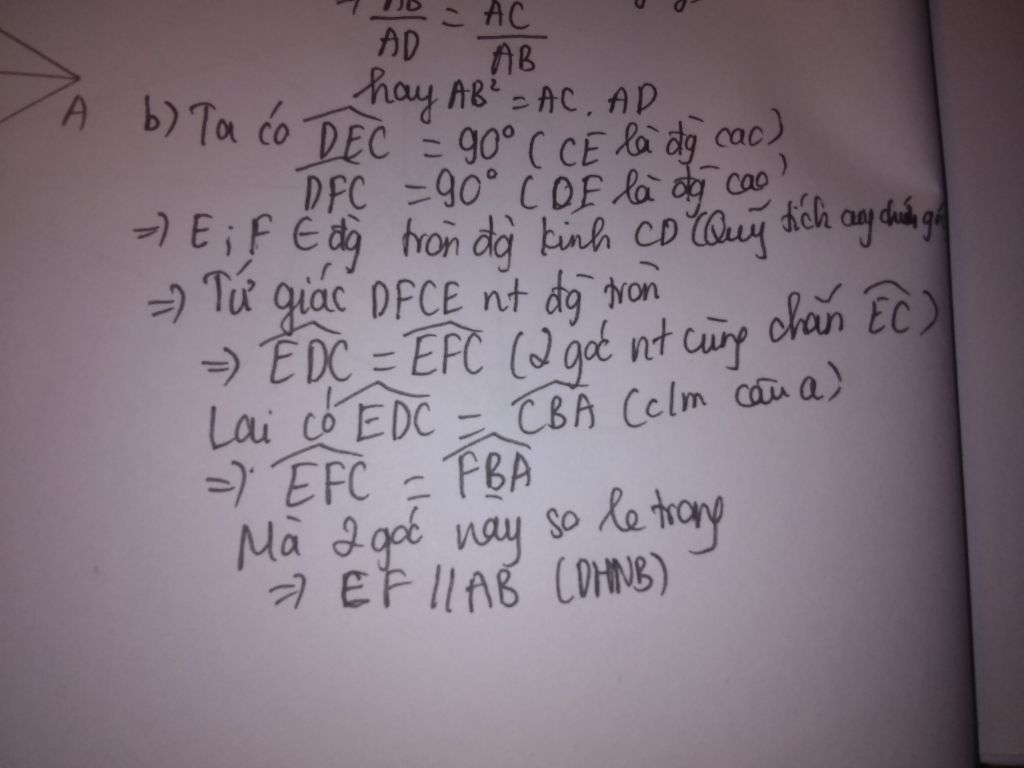 ⇒ AB/AD = AC/AB
hay AB² = AC . AD
A
b) Ta có DEC = 90° (CE là đg cao)
DFC = 90° (DF là đg cao)
⇒ E ; F ∈ đg tròn đg kính CD (Quỹ tích cung chứa gó
⇒ Tứ giác DFCE nt đg tròn
⇒ EDC = EFC (2 góc nt cùng chắn EC)
Lại có EDC = CBA (c/m câu a)
⇒ EFC = FBA
Mà 2 góc này so le trong
⇒ EF // AB (DHNB)